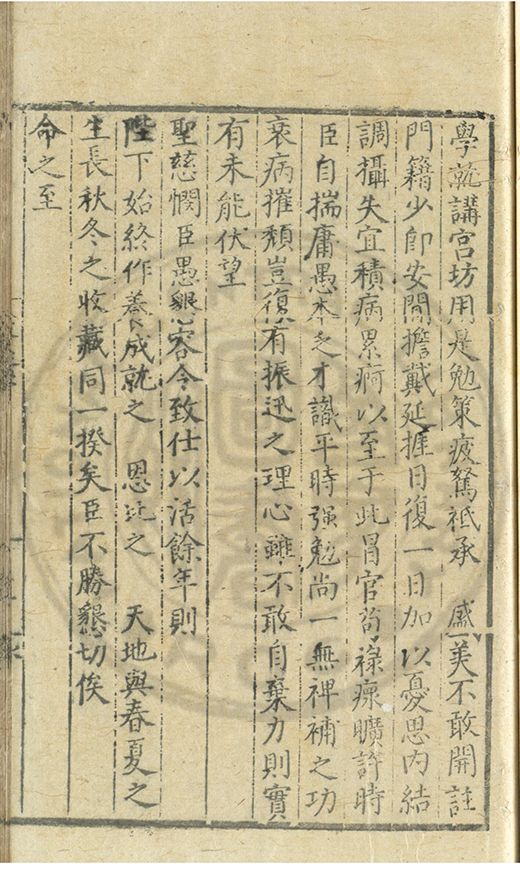 學就講宮坊用是勉策疲駑祗承 盛美不敢開註
門籍少即安閒擔戴延捱日復一日加以憂思內結
調攝失宜積病累痾以至于此冒官茍祿瘝曠許時
臣自揣庸愚本乏才識平時强勉尚一無裨補之功
衰病摧頹豈復有振迅之理心雖不敢自棄力則實
有未能伏望
聖慈憫臣愚懇容令致仕以活餘年則
陛下始終作養成就之 恩比之 天地與春夏之
生長秋冬之收藏同一揆矣臣不勝懇切俟
命之至